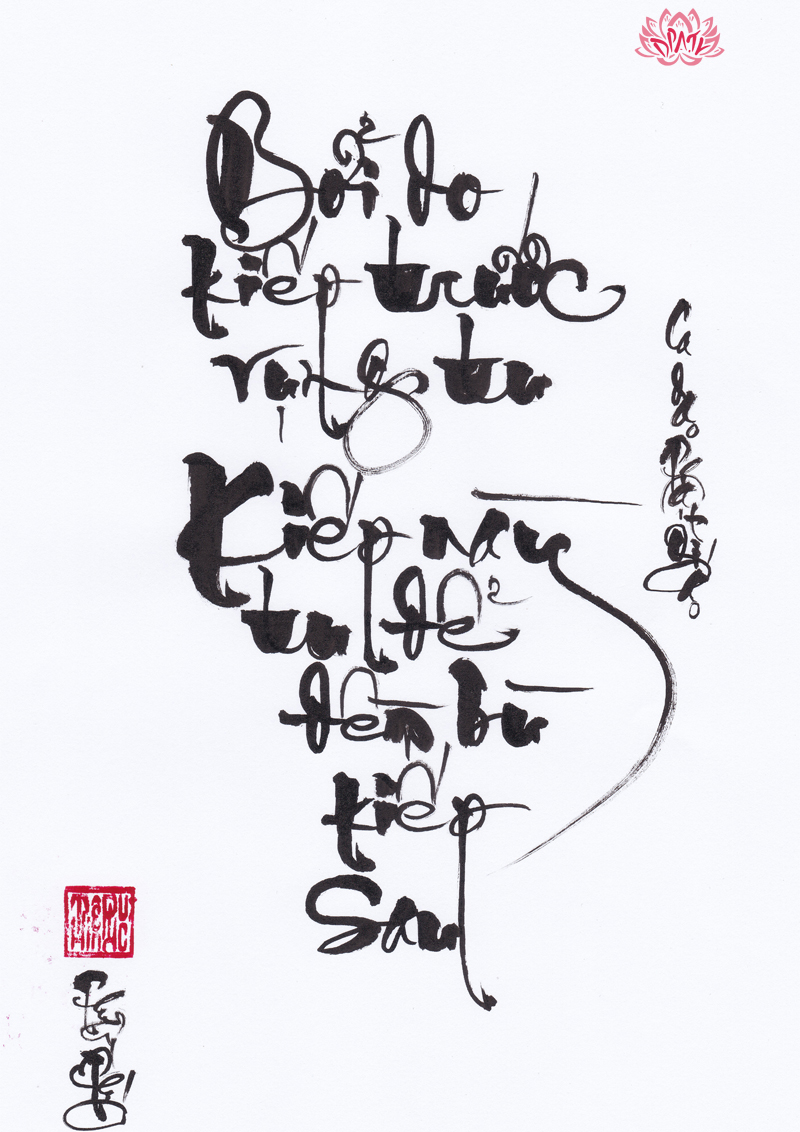 Bởi do
kiếp trước
vụng tu
Kiếp này
tu để
đền bù
kiếp
sau
Ca dao
ĐPATK